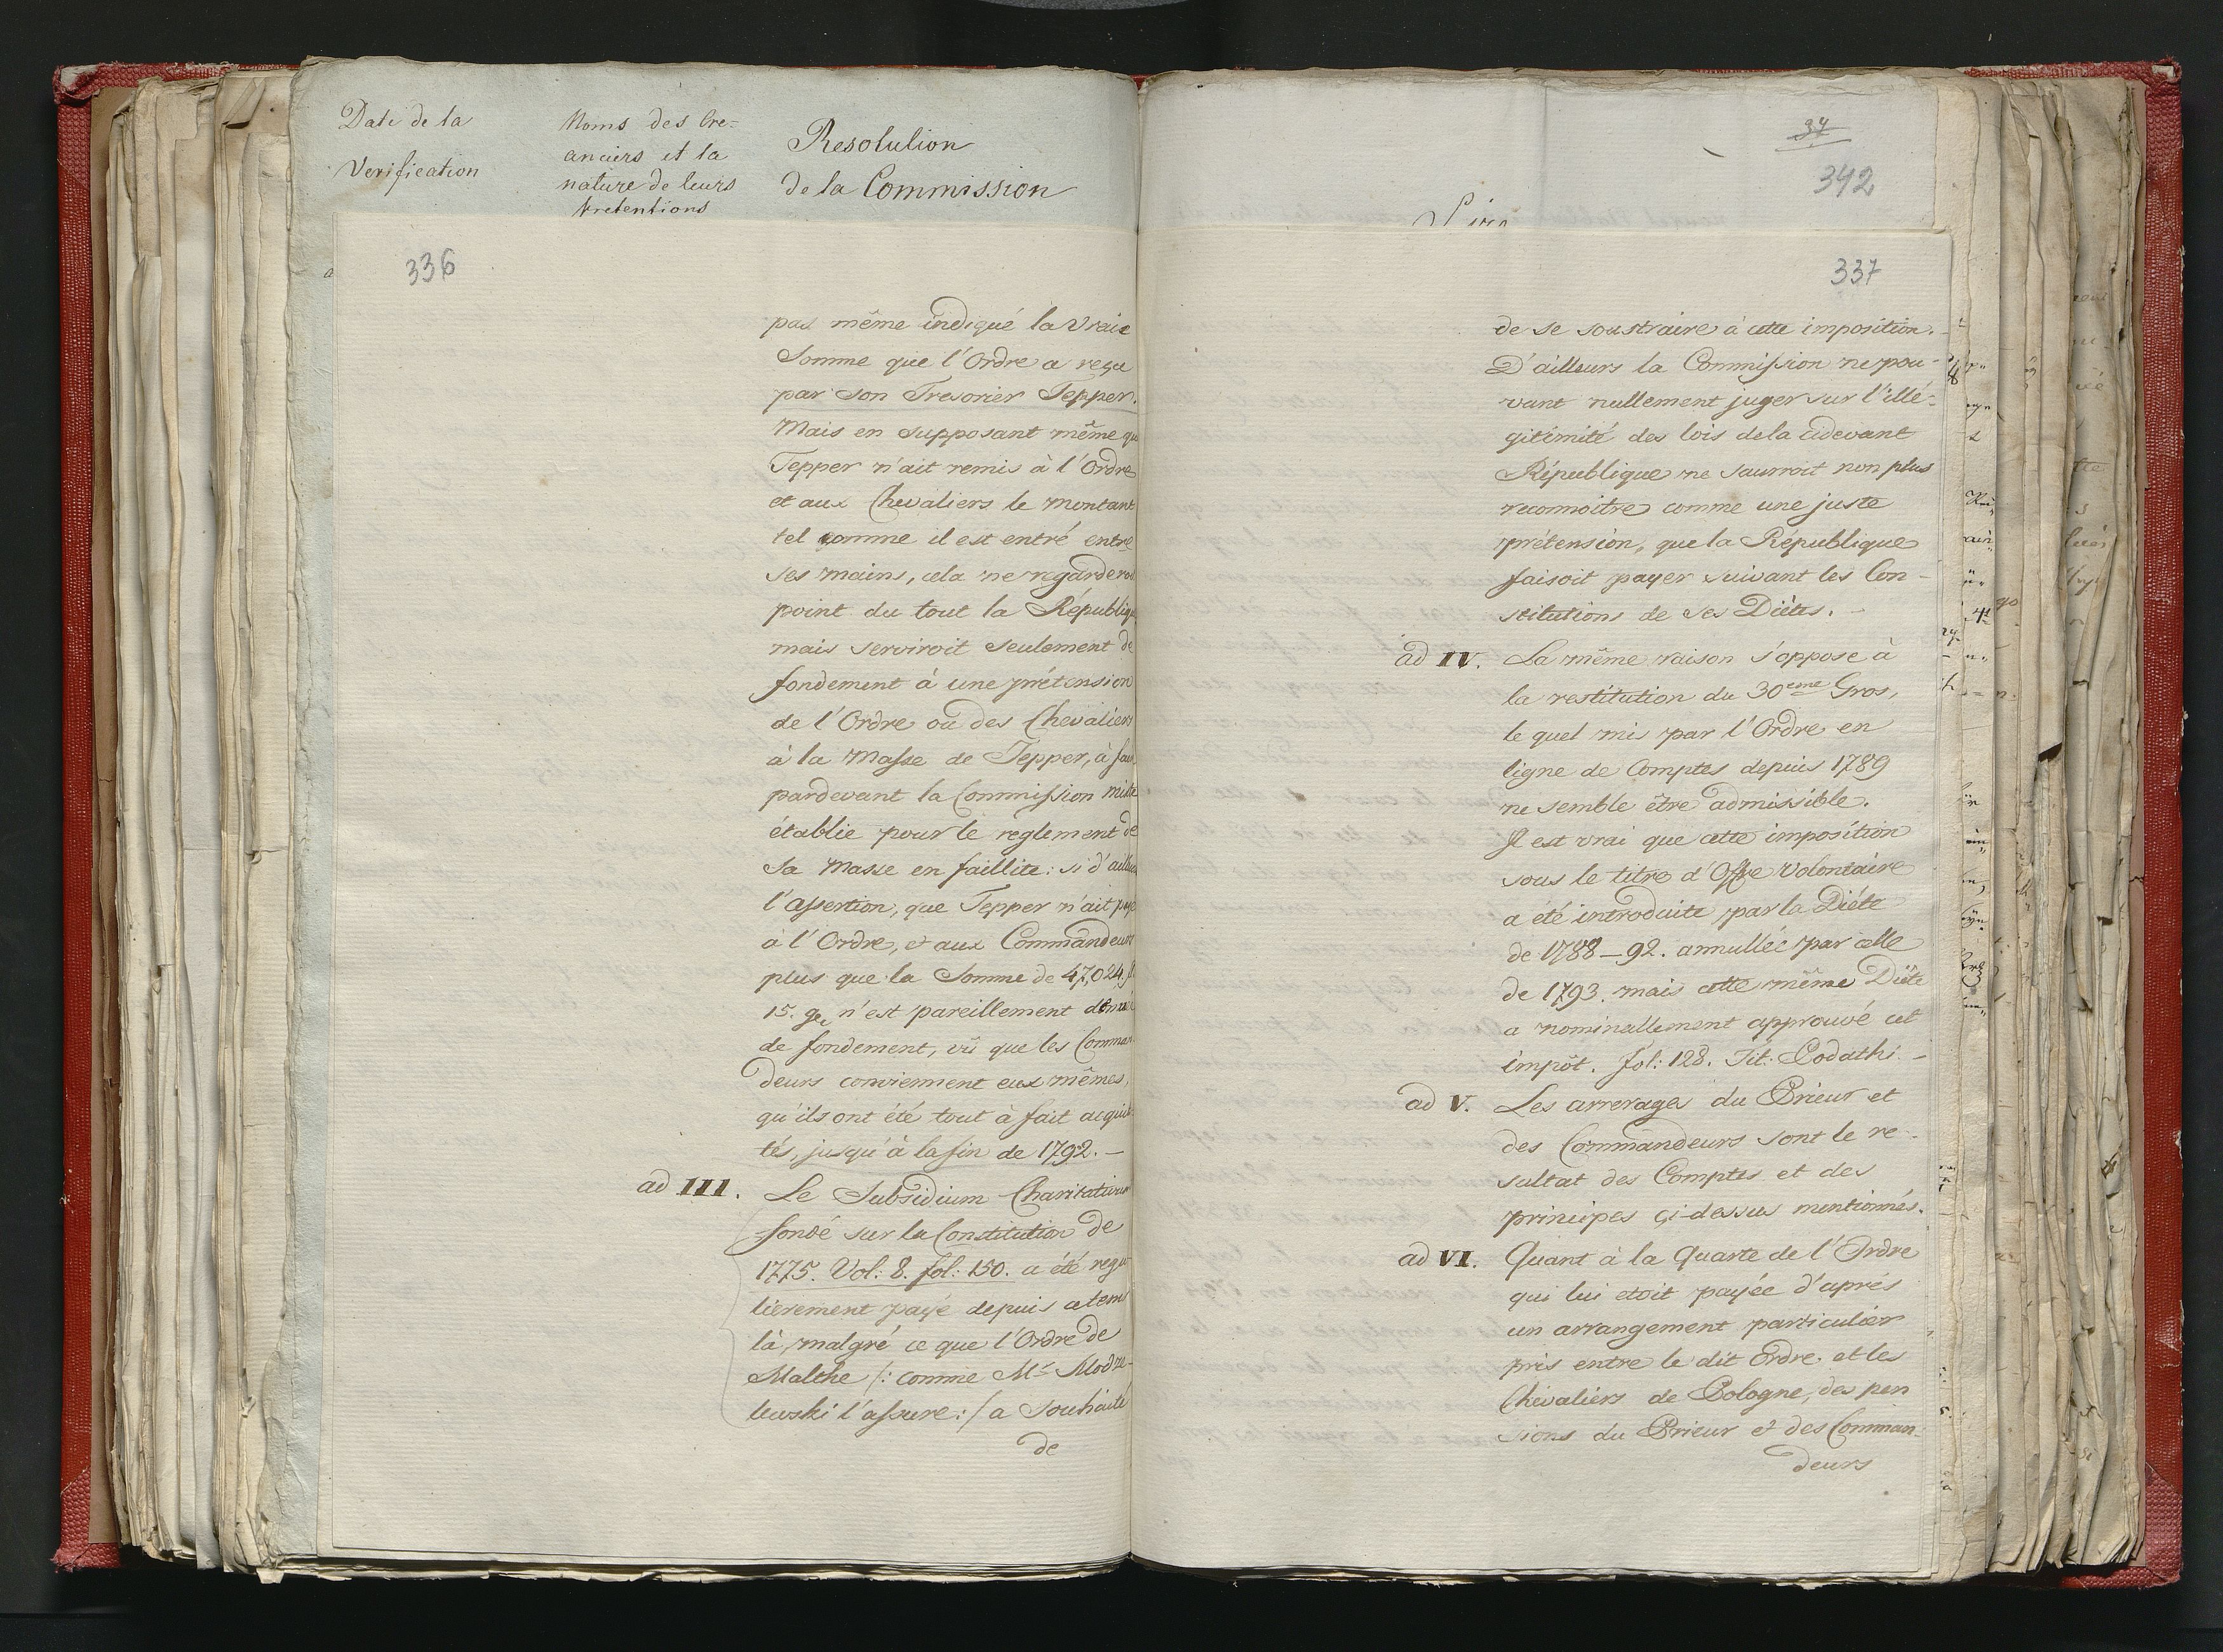 Date de la
Verification
Noms des Cre-
anciers et la
nature de leurs
pretentions
Resolution
de la Commission
336
pas même indiqué la vraie
Somme que l'Ordre a reçu
par son Tresorier Tepper.
Mais en supposant même qu
Tepper n'ait remis à l'Ordre
et aux Chevaliers le montant
tel comme il est entré entre
ses mains, cela ne regardero
point du tout la Républiq
mais serviroit seulement de
fondement à une prétension
de l'Ordre ou des Chevaliers
à la Masse de Tepper, à fai
pardevant la Commission mixte
établie pour le reglement de
Sa Masse en faillite: si d'ailleu
l'assertion, que Tepper n'ait payé
à l'Ordre, et aux Commandeurs
plus que la Somme de 47,024
15. n'est pareillement
de fondement, vû que les Comman
deurs conviennent eux mêmes,
qu'ils ont été tout à fait acquit
tés, jusqu'à la fin de 1792. —
ad III. Le Subsidium Charitativum
fondé sur la Constitution de
1775. Vol: 8. fol: 150. a été regu
lierement payé depuis ce tems
là, malgré ce que l'Ordre de
Malthe /: comme Mr Modze-
lewski l'assure :/ a souhaité
de
34
342
337
de se soustraire à cette imposition.
D'ailleurs la Commission ne pou-
vant nullement juger sur l'illé-
gitimité des lois de la cidevant
République ne sauroit non plus
reconnoitre comme une juste
prétension, que la République
faisoit payer suivant les Con-
stitutions de ses Diètes. —
ad IV. La même raison s'oppose à
la restitution du 30eme Gros,
le quel mis par l'Ordre en
ligne de Comptes depuis 1789
ne semble être admissible.
Il est vrai que cette imposition
sous le titre d'Offre Volontaire
a été introduite par la Diéte
de 1788—92. annullée par celle
de 1793. mais cette même Diéte
a nominellement approuvé cet
impôt. fol: 128. Tit: Podatki —
ad V. Les arrerages du Prieur et
des Commandeurs sont le re-
sultat des Comptes et des
principes çi-dessus mentionnés.
ad VI. Quant à la Quarte de l'Ordre
qui lui etoit payée d'aprés
un arrangement particulier
pris entre le dit Ordre, et les
Chevaliers de Pologne, des pen
sions du Prieur et des Comman-
deurs